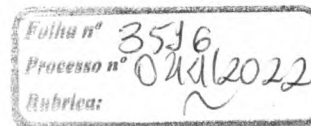 Folha nº 3516
Processo nº 041/2022
Rubrica: